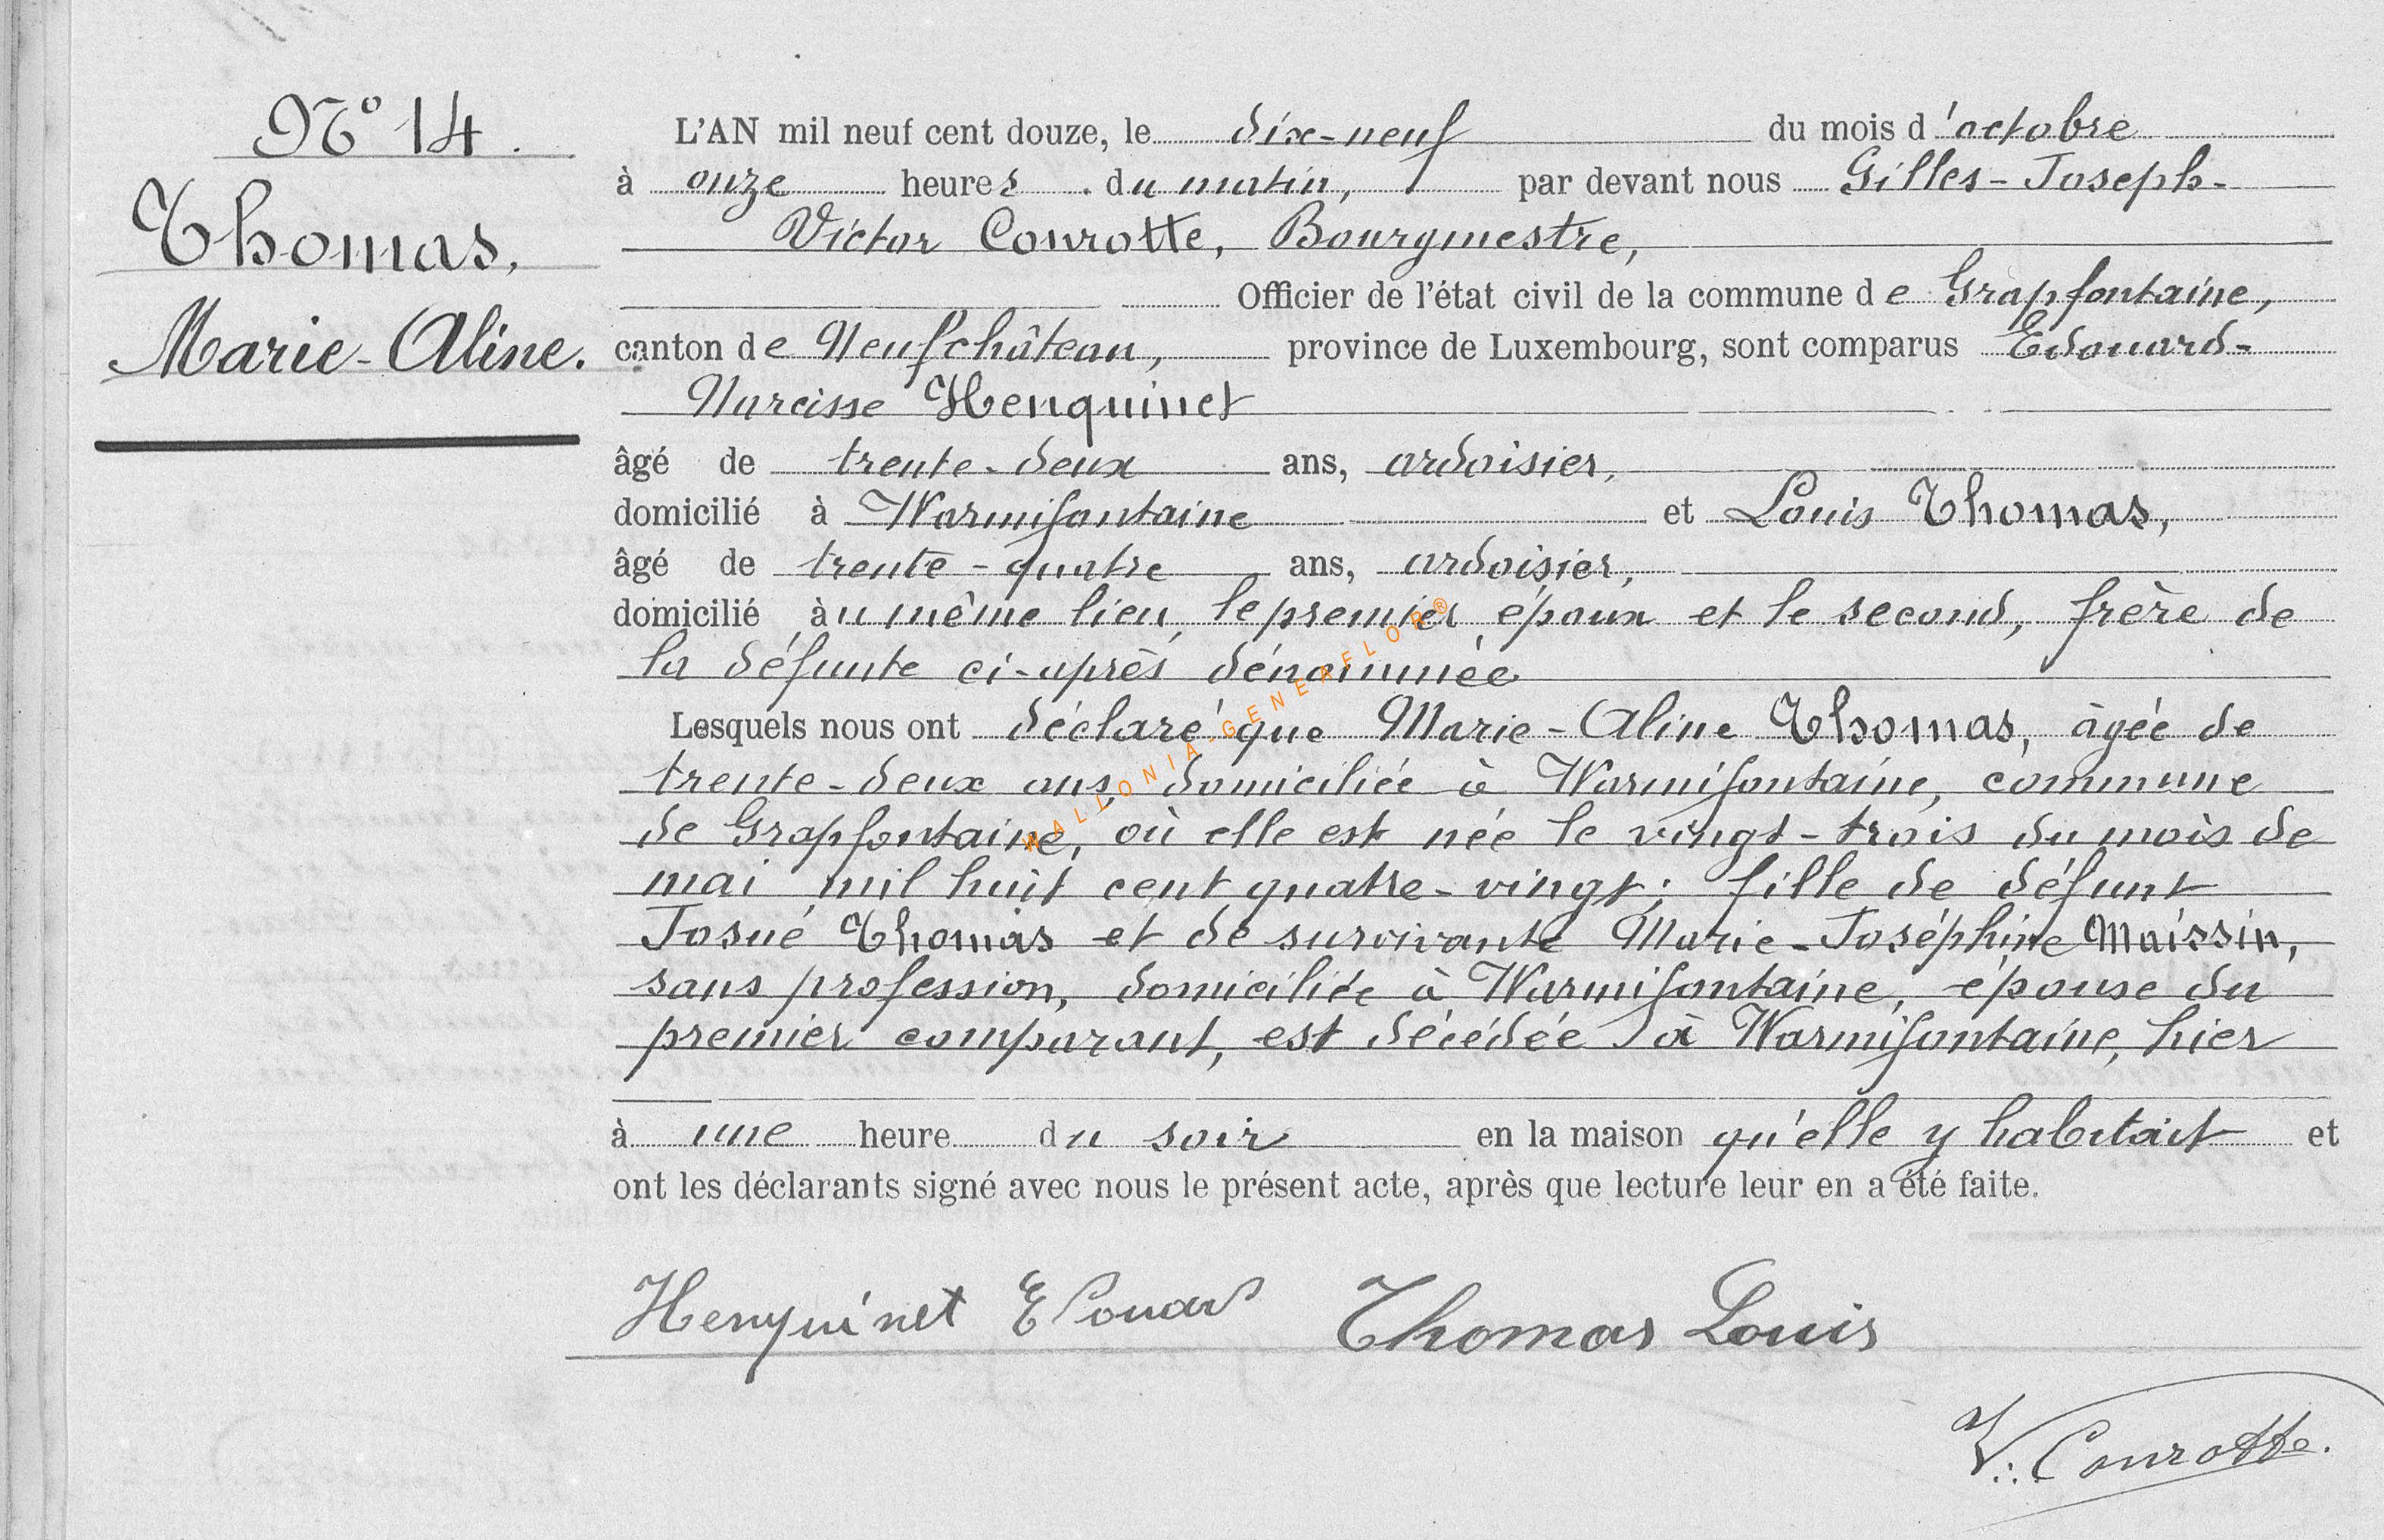 N° 14.
Thomas,
Marie-Aline.
L'AN mil neuf cent douze, le dix-neuf du mois d'octobre
à onze heures du matin, par devant nous Gilles-Joseph-
Victor Conrotte, Bourgmestre,
Officier de l'état civil de la commune de Grapfontaine,
canton de Neufchâteau, province de Luxembourg, sont comparus Edouard-
Narcisse Henquinet
âgé de trente-deux ans, ardoisier,
domicilié à Warmifontaine et Louis Thomas,
âgé de trente-quatre ans, ardoisier,
domicilié au même lieu, le premier époux et le second, frère de
la défunte ci-après dénommée
Lesquels nous ont déclaré que Marie-Aline Thomas, âgée de
trente-deux ans, domiciliée à Warmifontaine, commune
de Grapfontaine, où elle est née le vingt-trois du mois de
mai mil huit cent quatre-vingt; fille de défunt
Josué Thomas et de survivante Marie-Joséphine Maissin,
sans profession, domiciliée à Warmifontaine, épouse du
premier comparant, est décédée à Warmifontaine, hier
à une heure du soir en la maison qu'elle y habitait et
ont les déclarants signé avec nous le présent acte, après que lecture leur en a été faite.
Henquinet Edouard Thomas Louis
V. Conrotte.
WALLONIA-GENEAFLOR®